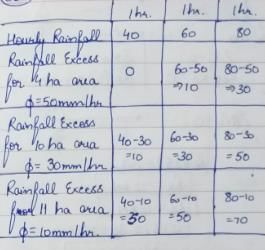 1hr. 1hr. 1hr.
Hourly Rainfall 40 60 80
Rainfall Excess
for 4 ha area 0 60-50 80-50
⇒10 ⇒30
ϕ=50mm/hr
Rainfall Excess
for 10 ha area 40-30 60-30 80-30
=10 =30 =50
ϕ= 30mm/hr
Rainfall Excess
for 11 ha area 40-10 60-10 80-10
=30 =50 =70
ϕ=10mm/hr.